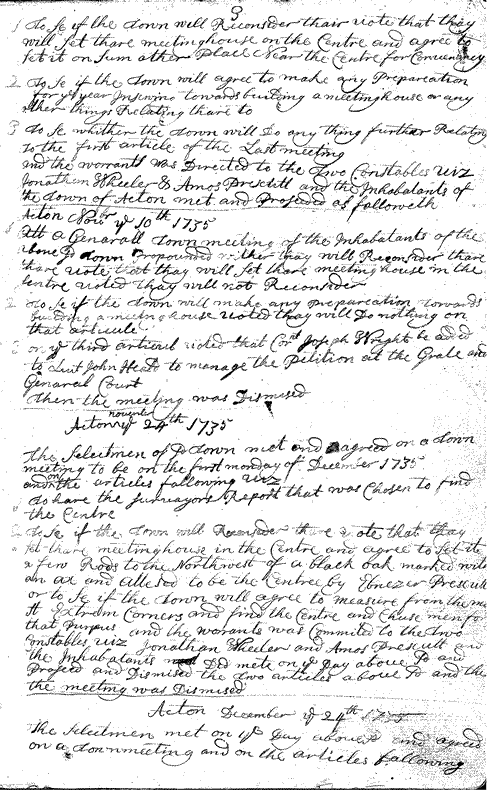 3
1 To se if the Town will Reconsider thair vote that thay
will set thare meetinghouse on the Centre and agree to
set it on Sum other Place Near the Centre for Conveniency
2 To Se if the Town will agree to make any Preparation
for ye year Insewing towards building a meetinghouse or any
other things Relating thare to
3 To Se whither the Town will Do any thing further Relating
to the first article of the Last meeting
and the worrants was Directed to the Two Constables viz
Jonathan Wheeler & Amos Prescutt and the Inhabatants of
the Town of Acton met and Proseded as followeth
Acton Nour ye 10th 1735
1 Att a Generall Town meeting of the Inhabatants of the
above sd Town Propounded whither thay will Reconsider thare
thare vote that thay will Set thare meetinghouse in the
Centre voted thay will not Reconsider
2 To Se if the Town will make any preparation towards
building a meetinghouse voted thay will Do nothing on
that articule
3 on ye third articul voted that Cornt Joseph Wright be added
to Luit John Heald to manage the Petition at the Grate and
Genaral Court
Then the meeting was Dismised
Acton november ye 24th 1735
The Selectmen of sd Town met and agreed on a Town
meeting to be on the first monday of December 1735
and on the articles fallowing viz
To hare the Survayors Report that was Chosen to find
the Centre
2 To Se if the Town will Reconsider thare vote that thay
set thare meetinghouse in the Centre and agree to set it
a few Rods to the Northwest of a black oak marked with
an ax and alleged to be the Centre by Ebnezer Prescutt
or to Se if the Town will agree to measure from the most
Extrem Corners and find the Centre and Chuse men for
that Purpus and the worants was Commited to the Two
Constables viz Jonathan Wheeler and Amos Prescutt and
the Inhabatants Did mete on ye Day above sd and
Prosed and Dismised the Two articles above sd and the
the meeting was Dismised
Acton December ye 24th 1735
The Selectmen met on ye Day above sd and agreed
on a Townmeeting and on the articles fallowing